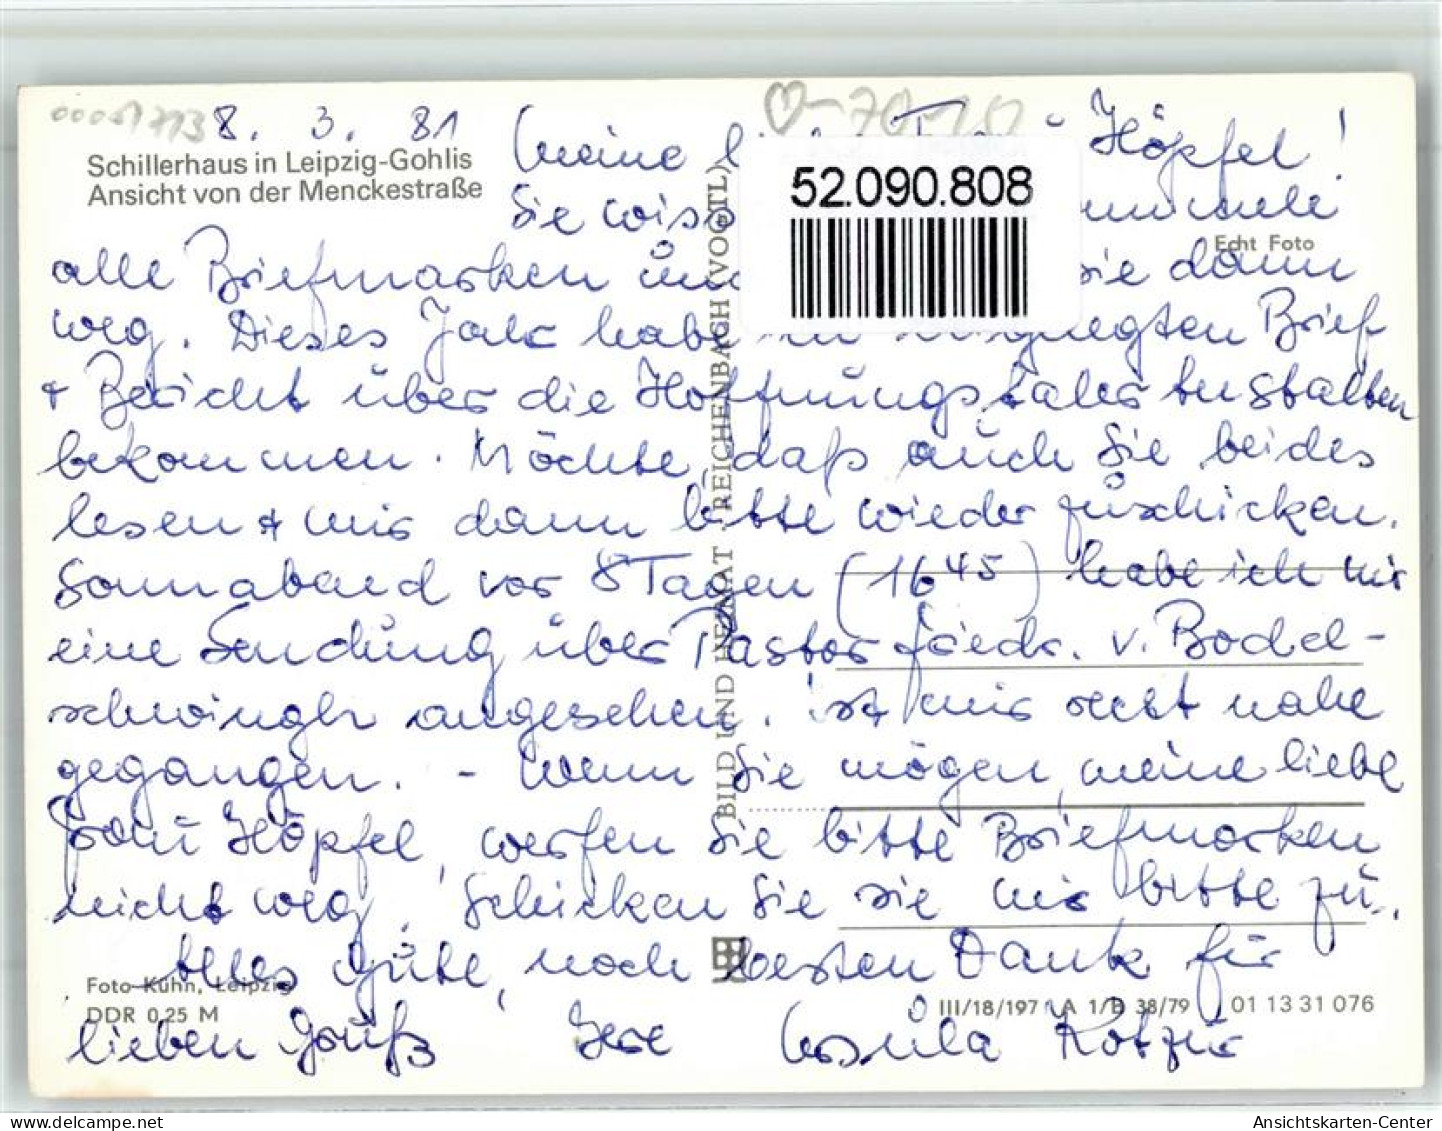 00051713
8. 3. 81
Schillerhaus in Leipzig-Gohlis
Ansicht von der Menckestraße
Meine Höpfel!
52.090.808
Sie
Echt Foto
alle Briefmarken und sie dann
weg. Dieses Jahr habe beigelegten Brief
+ Bericht über die Hoffnungstaler Anstalten
bekommen. Möchte, daß auch Sie beides
lesen + mir dann bitte wieder zuschicken.
Sonnabend vor 8 Tagen (16 45) habe ich mir
eine Sendung über Pastor Friedr. v. Bodel-
schwingh angesehen. ist mir recht nahe
gegangen. - Wenn Sie mögen, meine liebe
Frau Höpfel, werfen Sie bitte Briefmarken
nicht weg, schicken Sie sie mir bitte zu.
Alles Gute, noch besten Dank für
lieben Gruß Ihre Ursula Kotzur
BILD UND HEIMAT · REICHENBACH (VOGTL)
Foto Kühn, Leipzig
DDR 0,25 M
III/18/197 A 1/B 38/79 01 13 31 076
Ansichtskarten-Center